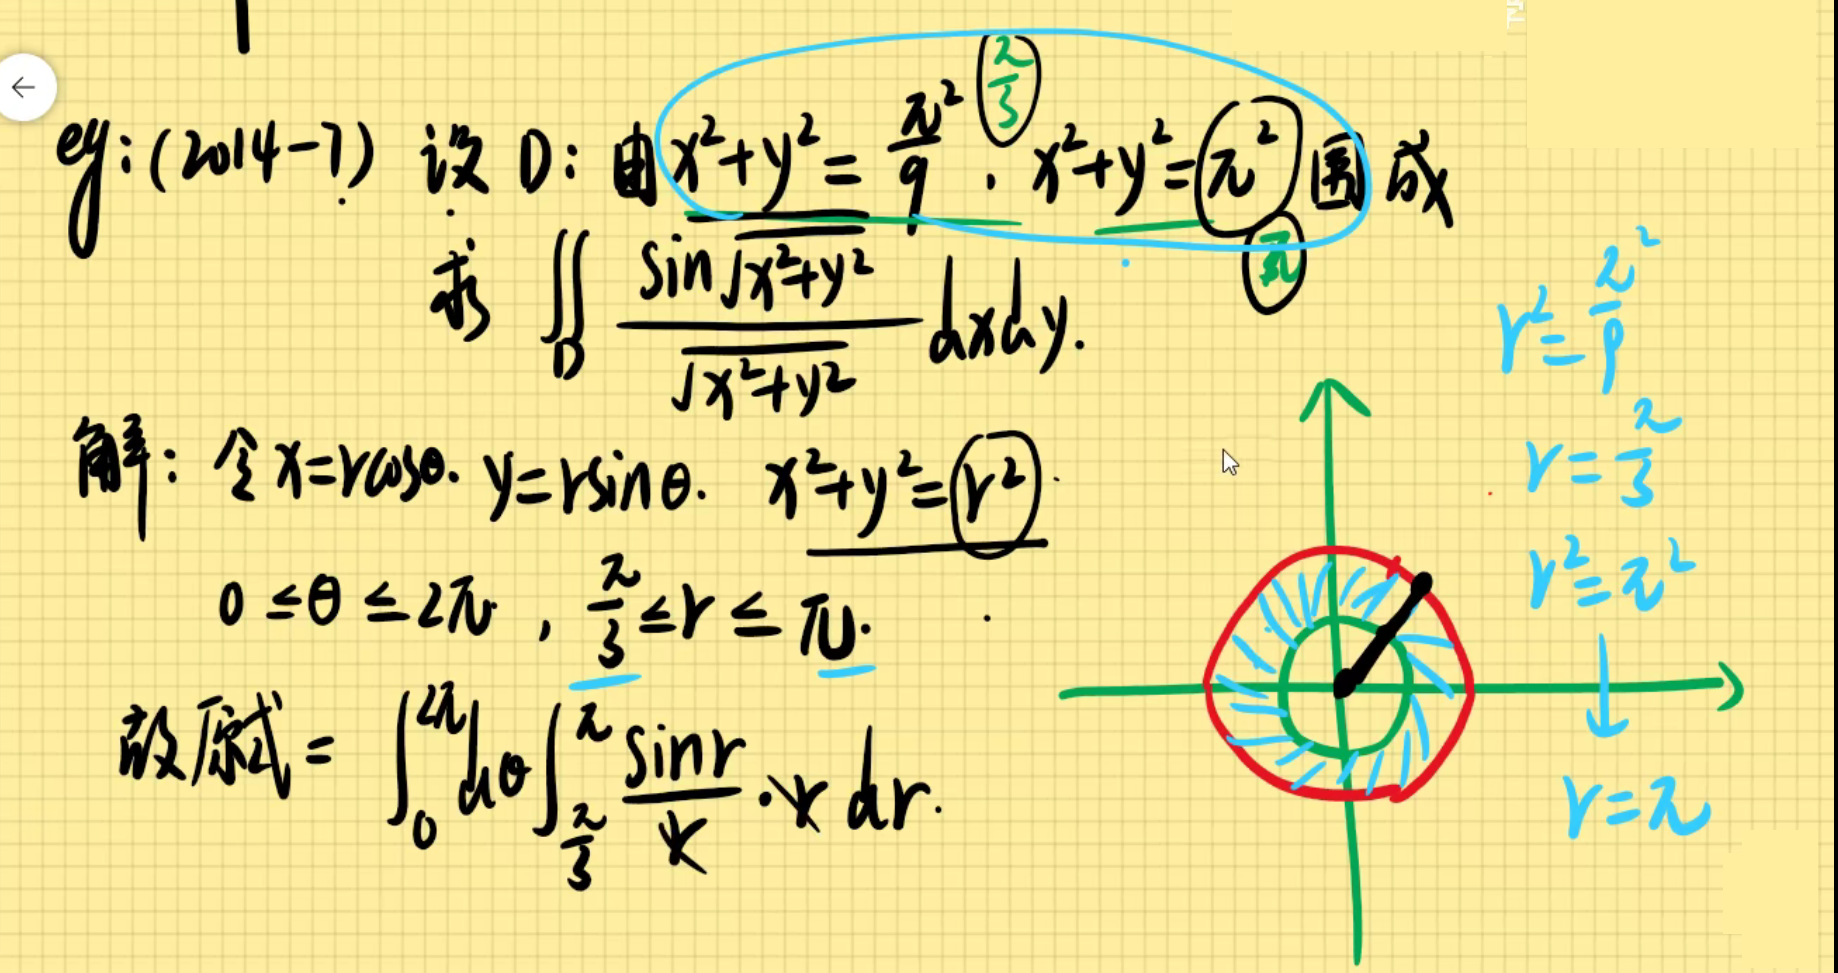 eg:(2014-7) 设 D: 由 x²+y²=π²/9 . x²+y²=π² 围成
π/3
π
求 ∬_D sin√x²+y² / √x²+y² dxdy.
解: 令 x=rcosθ. y=rsinθ. x²+y²=r²
0≤θ≤2π , π/3≤r≤π.
故原式= ∫_0^2π dθ ∫_π/3^π sinr/r · r dr.
r²=π²/9
r=π/3
r²=π²
r=π